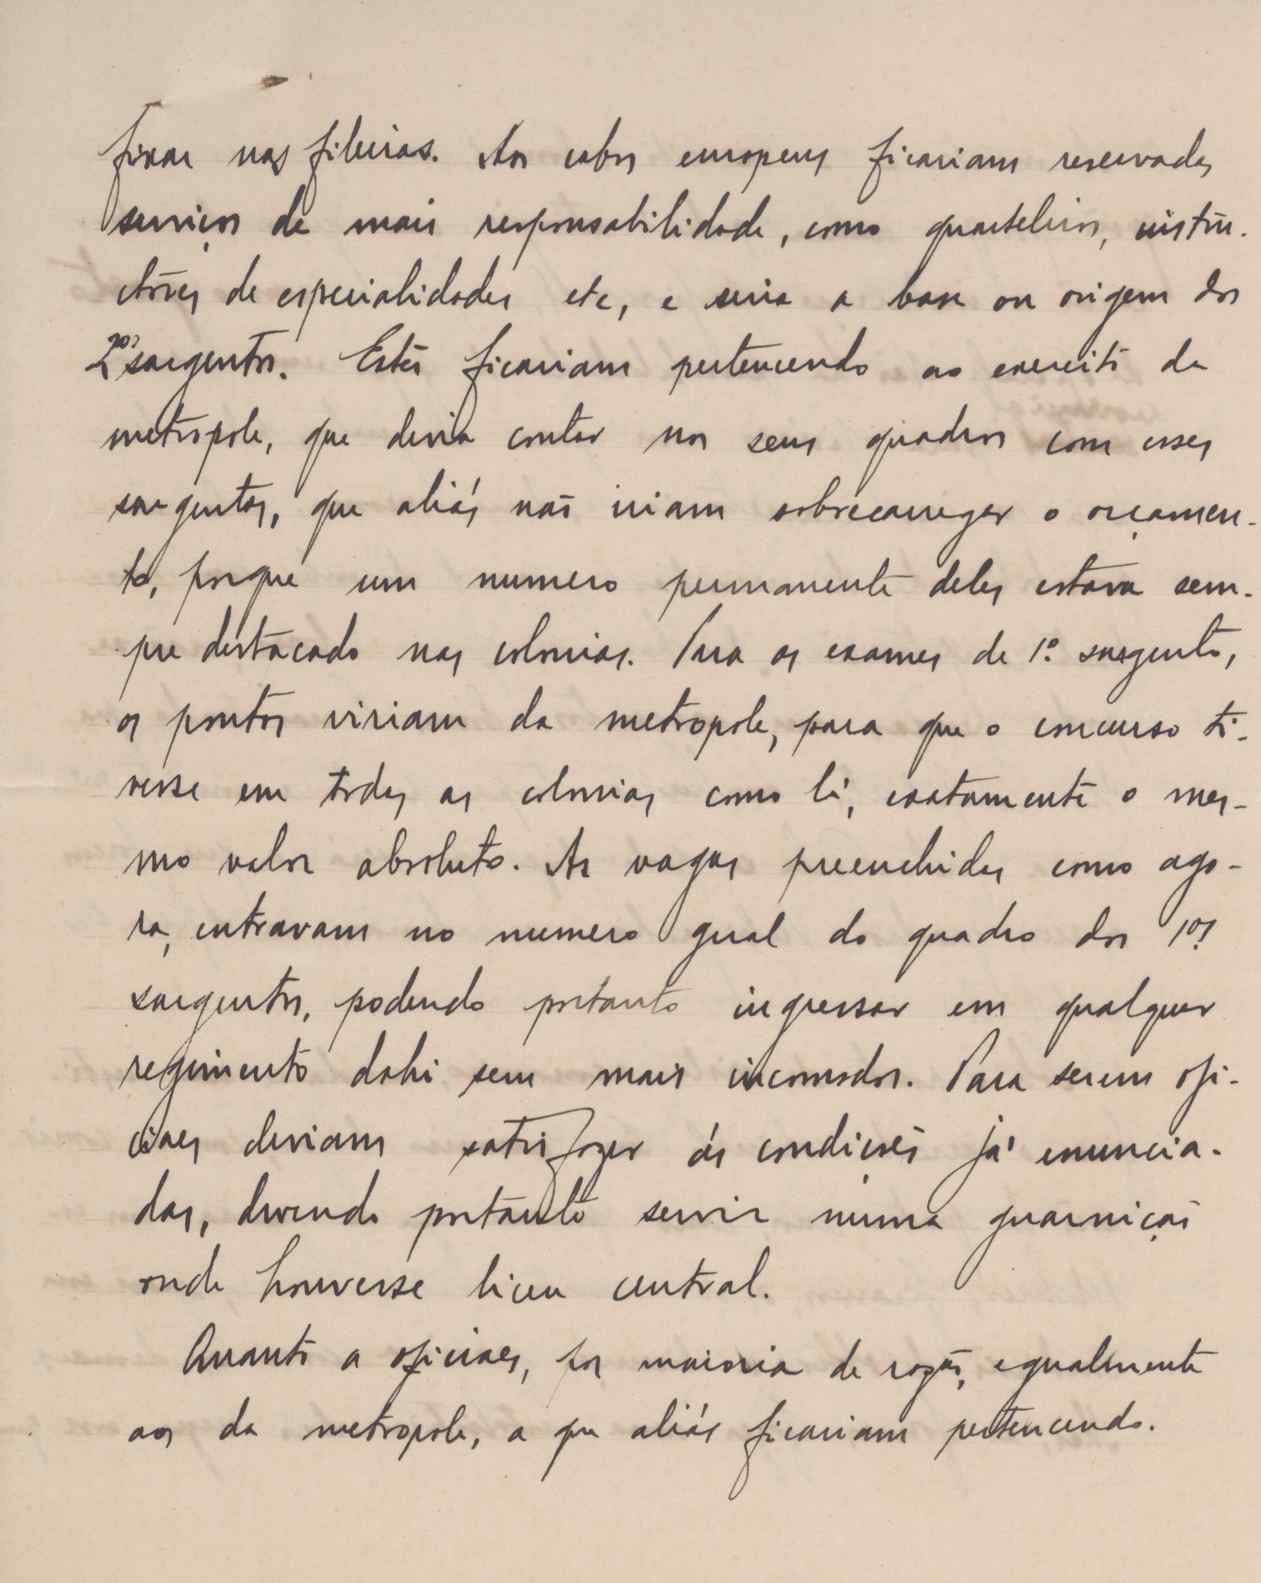 fixar nas fileiras. Aos cabos europeus ficariam reservados
serviços de mais responsabilidade, como quarteleiros, instru-
ctôres de especialidades etc, e seria a base ou origem dos
2ºs sargentos. Estes ficariam pertencendo ao exercito da
metropole, que devia contar nos seus quadros com esses
sargentos, que aliás não iriam sobrecarregar o orçamen-
to, porque um numero permanente deles estava sem-
pre destacado nas colonias. Para os exames de 1º sargento,
os pontos viriam da metropole, para que o concurso ti-
vesse em todas as colonias como lá, exatamente o mes-
mo valor absoluto. As vagas preenchidas como ago-
ra, entravam no numero geral do quadro dos 1ºs
sargentos, podendo portanto ingressar em qualquer
regimento dahi sem mais incomodos. Para serem ofi-
ciaes deviam satisfazer ás condições já enuncia-
das, devendo portanto servir numa guarnição
onde houvesse liceu central.
Quanto a oficiaes, por maioria de razão, egualmente
aos da metropole, a que aliás ficariam pertencendo.